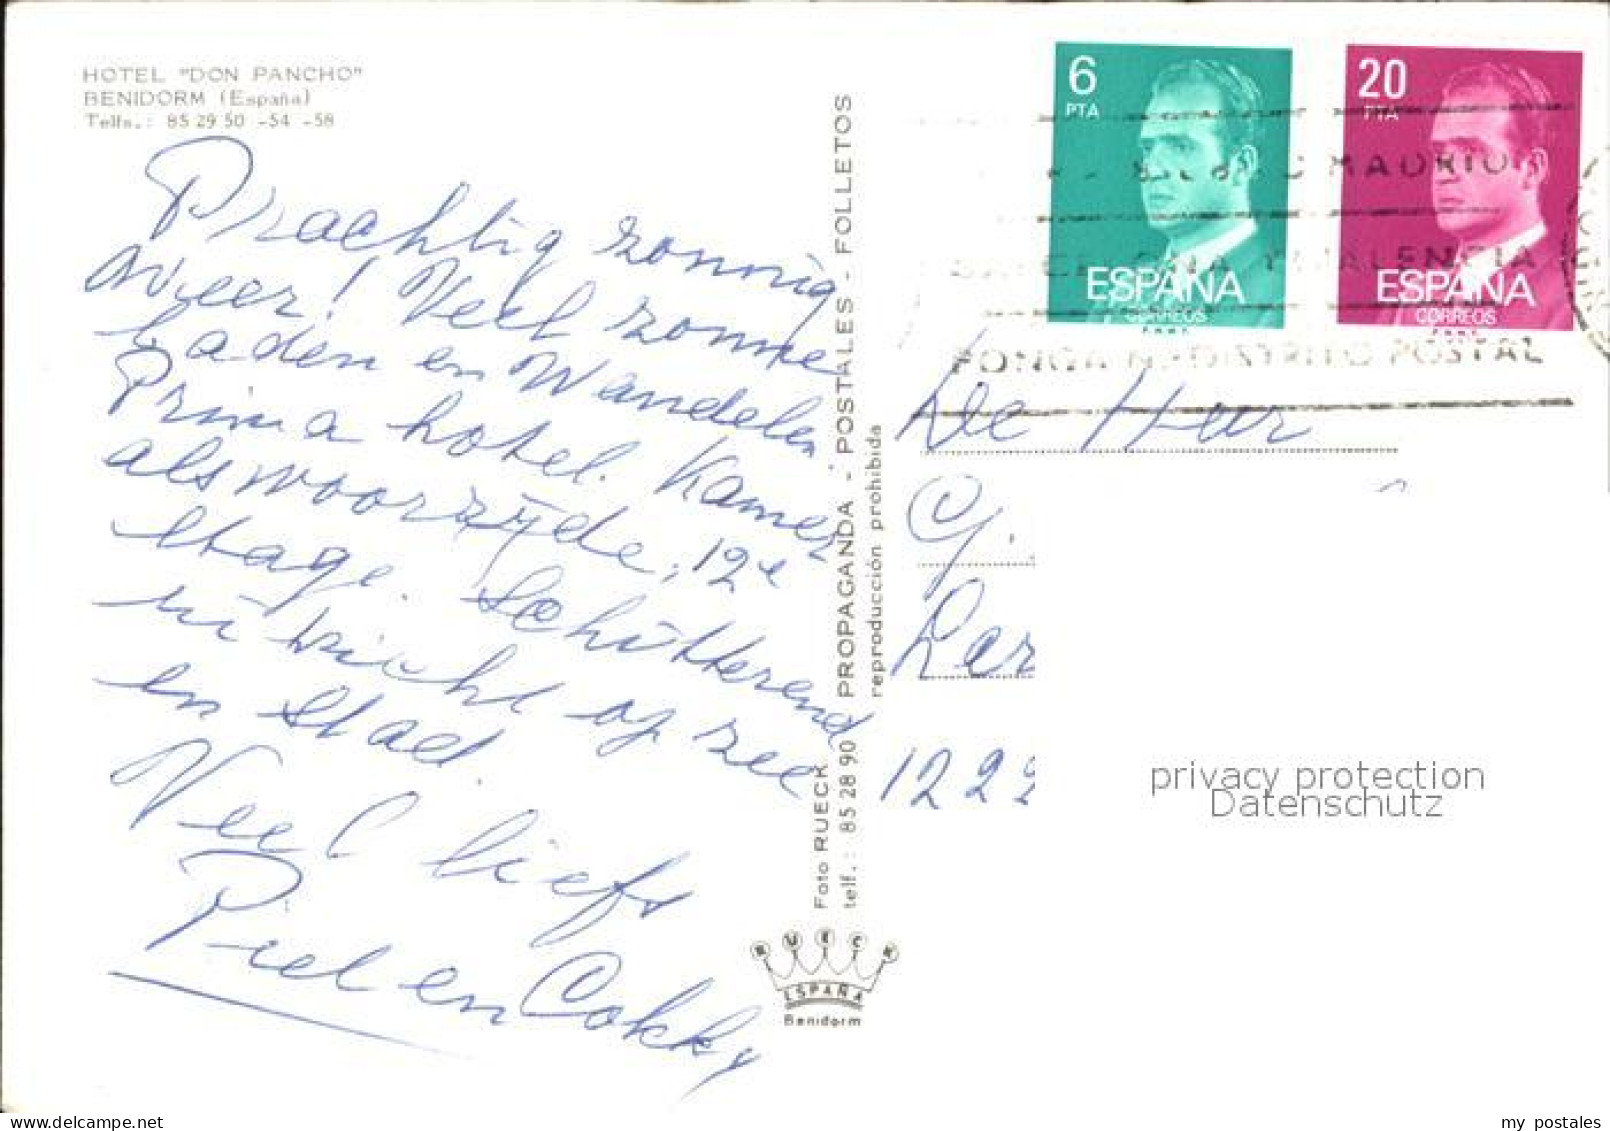 HOTEL "DON PANCHO"
BENIDORM (España)
Telfs.: 85 29 50 -54 -58
Prachtig zonnig
weer! Veel zonne
baden en Wandelen
Prima hotel. Kamer
als voorzijde, 12e
etage. Schitterend
uitzicht op zee
en stad.
Veel liefs
Piet en Cokky
Foto RUECK PROPAGANDA - POSTALES - FOLLETOS
telf.: 85 28 90 reproducción prohibida
RUECK
ESPAÑA
Benidorm
6
PTA
ESPAÑA
CORREOS
20
PTA
ESPAÑA
CORREOS
MADRID
BARCELONA Y VALENCIA
PONGA N.º DISTRITO POSTAL
De Heer
G.
Lar
1222
privacy protection
Datenschutz
akpool.de
my postales